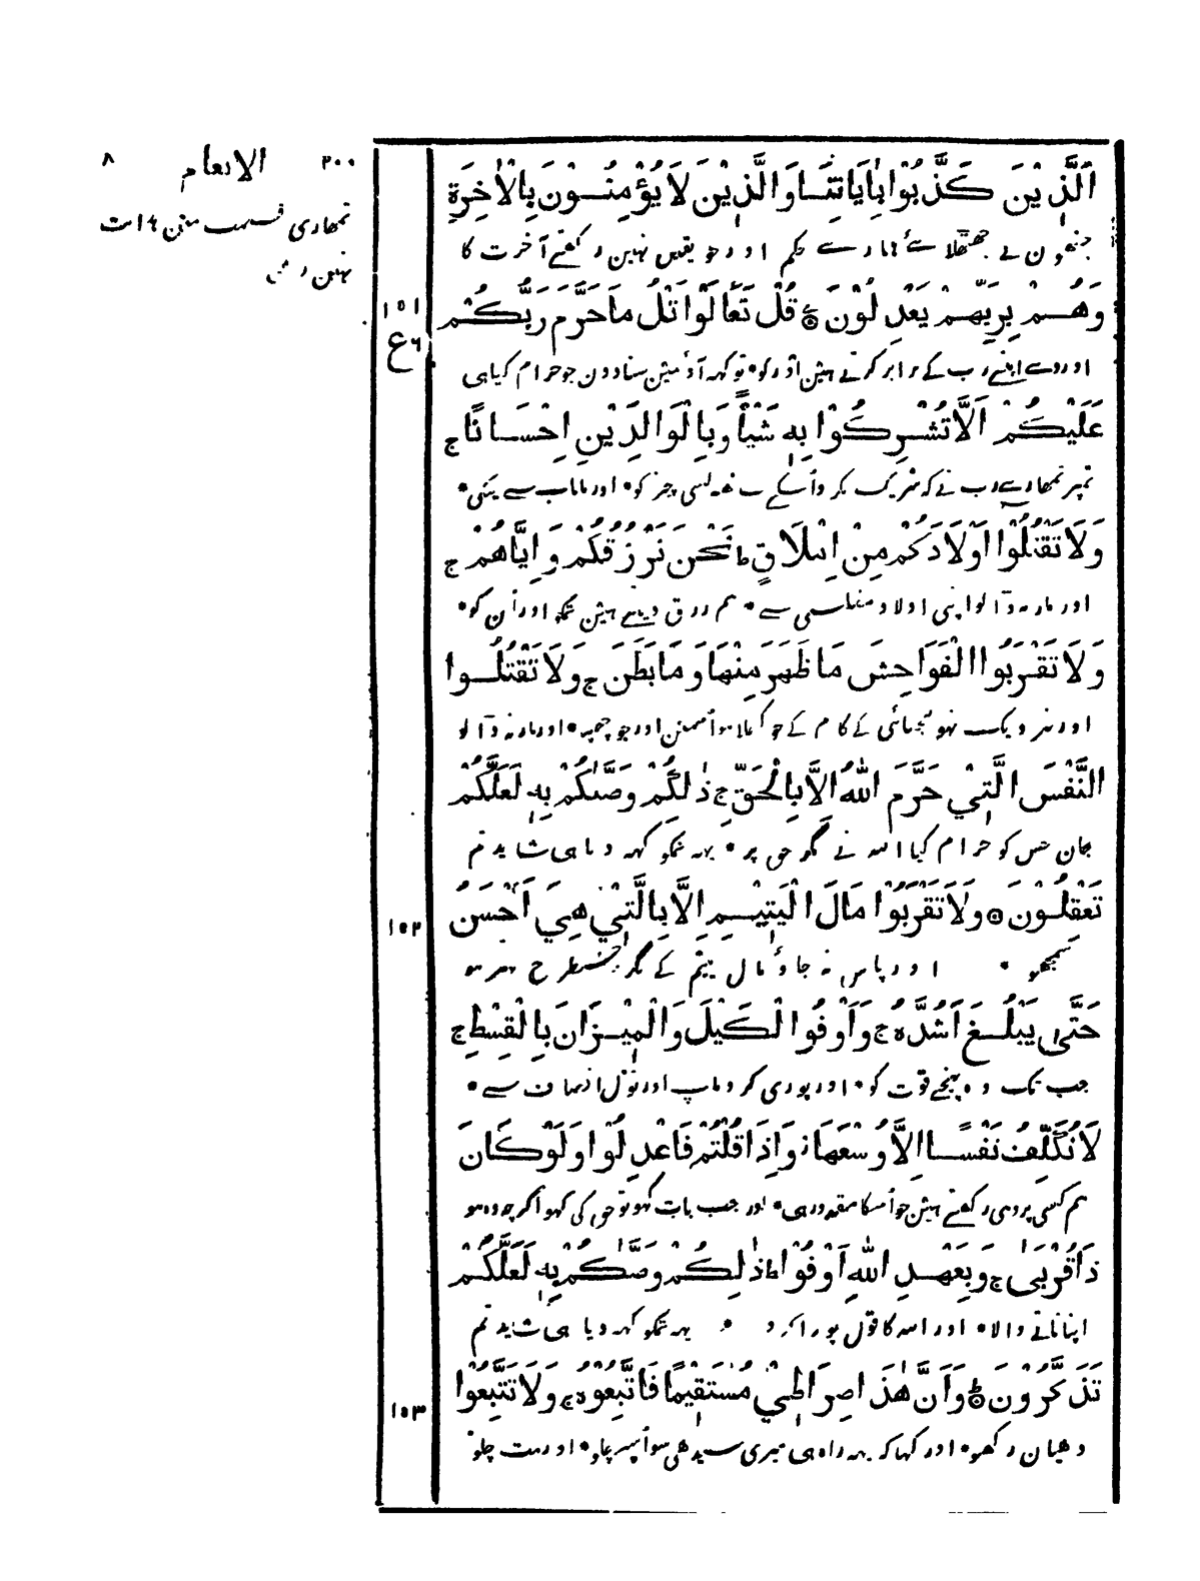 ٢٠٠ الانعام ٨
تمھاری قسمت مین
نہین
اَلَّذِيْنَ كَذَّبُوْا بِاٰيَاتِنَا وَالَّذِيْنَ لَا يُؤْمِنُوْنَ بِالْاٰخِرَةِ
جنھون نے جھٹلائے ہمارے حکم اور جو یقین نہین رکھتے آخرت کا
وَهُمْ بِرَبِّهِمْ يَعْدِلُوْنَ ۞ قُلْ تَعَالَوْا اَتْلُ مَا حَرَّمَ رَبُّكُمْ
١٥١
ع ٦
اور وے اپنے رب کے برابر کرتے ہین اور کو • تو کہہ آؤ مین سنا دون جو حرام کیا ہی
عَلَيْكُمْ اَلَّا تُشْرِكُوْا بِهٖ شَيْأً وَبِالْوَالِدَيْنِ اِحْسَانًا ج
تمپر تمھارے رب نے کہ شریک نکرو اُسکے ساتھہ کسی چیز کو • اور ماباپ سے نیکی •
وَلَا تَقْتُلُوْا اَوْلَادَكُمْ مِنْ اِمْلَاقٍ ط نَحْنُ نَرْزُقُكُمْ وَاِيَّاهُمْ ج
اور مار نہ ڈالو اپنی اولاد مفلسی سے • ہم رزق دیتے ہین تمکو اور اُن کو •
وَلَا تَقْرَبُوا الْفَوَاحِشَ مَا ظَهَرَ مِنْهَا وَمَا بَطَنَ ج وَلَا تَقْتُلُوا
اور نزدیک نہو بیحیائی کے کام کے جو کھلا ہو اُسمین اور جو چھپہ • اور مار نہ ڈالو
النَّفْسَ الَّتِيْ حَرَّمَ اللهُ اِلَّا بِالْحَقِّ ج ذٰلِكُمْ وَصّٰىكُمْ بِهٖ لَعَلَّكُمْ
جان جس کو حرام کیا اللہ نے مگر حق پر • یہہ تمکو کہہ دیا ہی شاید تم
تَعْقِلُوْنَ ۞ وَلَا تَقْرَبُوْا مَالَ الْيَتِيْمِ اِلَّا بِالَّتِيْ هِيَ اَحْسَنُ
١٥٢
سمجھو • اور پاس نہ جاؤ مال یتیم کے مگر جسطرح بہتر ہو
حَتّٰى يَبْلُغَ اَشُدَّهُ ج وَاَوْفُوا الْكَيْلَ وَالْمِيْزَانَ بِالْقِسْطِ ج
جب تک وہ پہنچے قوت کو • اور پوری کرو ماپ اور تول انصاف سے •
لَا نُكَلِّفُ نَفْسًا اِلَّا وُسْعَهَا ز وَاِذَا قُلْتُمْ فَاعْدِلُوْا وَلَوْ كَانَ
ہم کسی پر وہی رکھتے ہین جو اُسکا مقدور ہی • اور جب بات کہو تو حق کی کہو اگرچہ وہ ہو
ذَا قُرْبٰى ج وَبِعَهْدِ اللهِ اَوْفُوْا ط ذٰلِكُمْ وَصّٰىكُمْ بِهٖ لَعَلَّكُمْ
اپنا ناتے والا • اور اللہ کا قول پورا کرو • یہہ تمکو کہہ دیا ہی شاید تم
تَذَكَّرُوْنَ ۞ وَاَنَّ هٰذَا صِرَاطِيْ مُسْتَقِيْمًا فَاتَّبِعُوْهُ ج وَلَا تَتَّبِعُوْا
١٥٣
دھیان رکھو • اور کہا کہ یہہ راہ ہی میری سیدھی سو اُسپر چلو • اور مت چلو